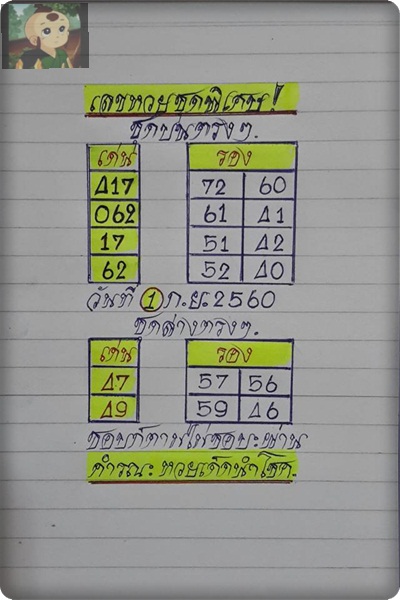 เลขหวยชุดพิเศษ!
ชุดบนตรงๆ.
เด่น รอง
417 72 60
062 61 41
17 51 42
62 52 40
วันที่ 1 ก.ย. 2560
ชุดล่างตรงๆ.
เด่น รอง
47 57 56
49 59 46
ชอบก็ตามไม่ชอบผ่าน
คำรณ: หวยเด็ดนำโชค.